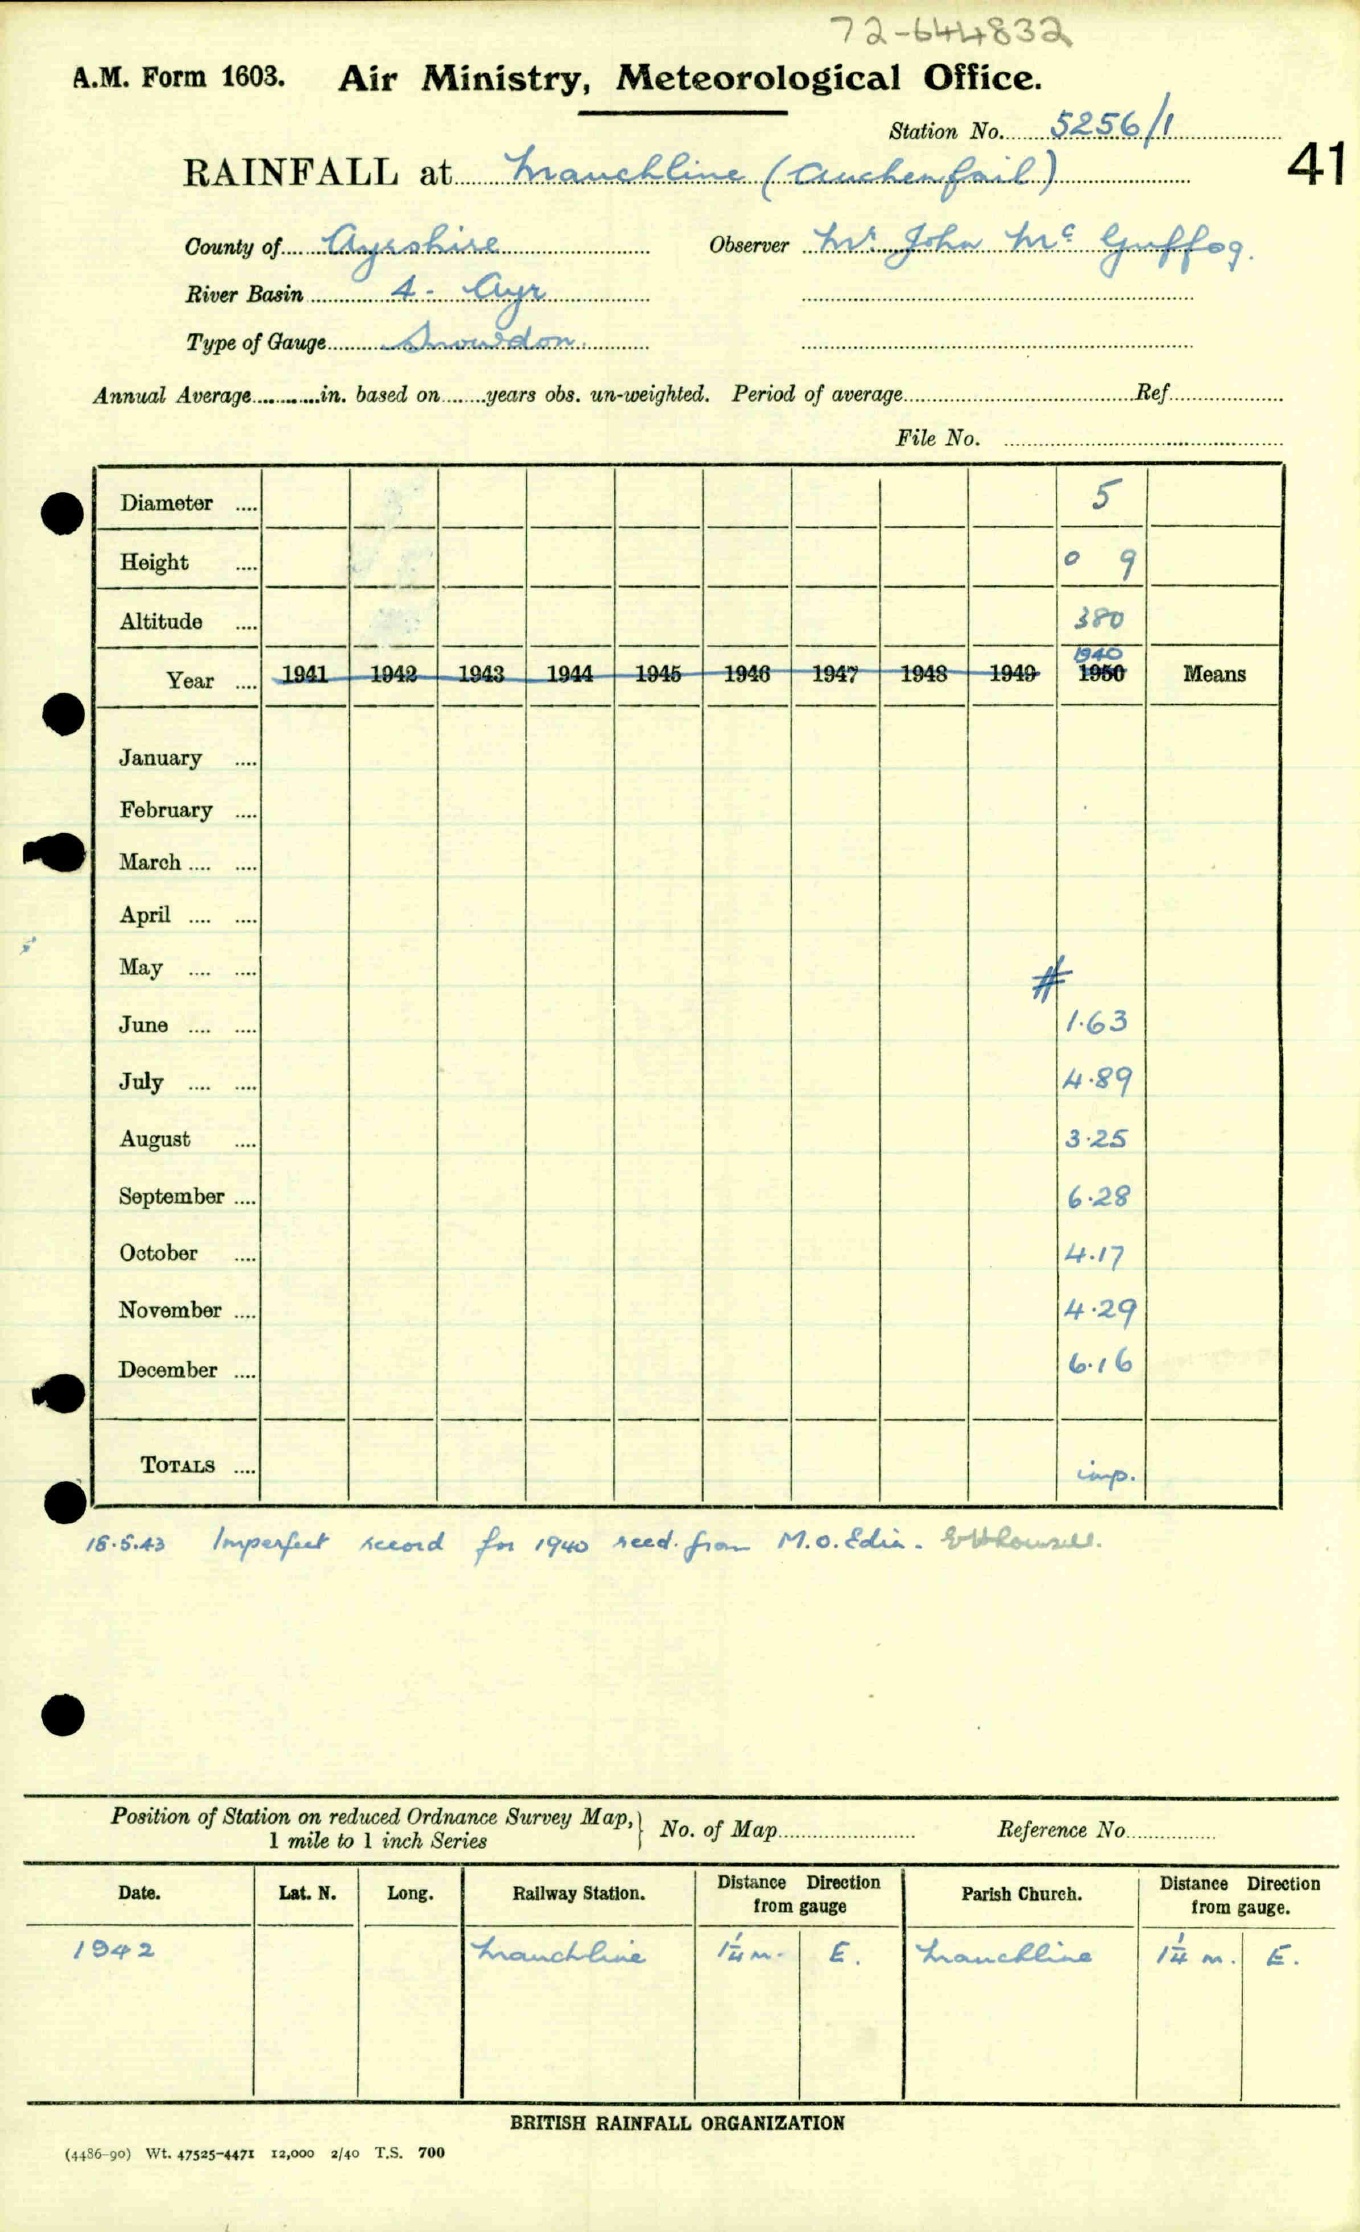 72-644832
A.M. Form 1603. Air Ministry, Meteorological Office.
Station No. 5256/1
41
RAINFALL at Mauchline (Auchenfail)
County of Ayrshire Observer Mr. John Mc Guffog.
River Basin 4 - Ayr
Type of Gauge Snowdon.
Annual Average............in. based on........years obs. un-weighted. Period of average................Ref................
File No. ................
Diameter .... 5
Height .... 0 9
Altitude .... 380
1940
Year .... 1941 1942 1943 1944 1945 1946 1947 1948 1949 1950 Means
January ....
February ....
March .... ....
April .... ....
May .... ....
#
June .... .... 1.63
July .... .... 4.89
August .... 3.25
September .... 6.28
October .... 4.17
November .... 4.29
December .... 6.16
TOTALS .... imp.
18.5.43 Imperfect record for 1940 recd. from M.O. Edin.
Position of Station on reduced Ordnance Survey Map,} No. of Map................ Reference No................
1 mile to 1 inch Series
Date. Lat. N. Long. Railway Station. Distance Direction from gauge Parish Church. Distance Direction from gauge.
1942 Mauchline 1¼ m. E. Mauchline 1¼ m. E.
BRITISH RAINFALL ORGANIZATION
(4486-90) Wt. 47525-4471 12,000 2/40 T.S. 700